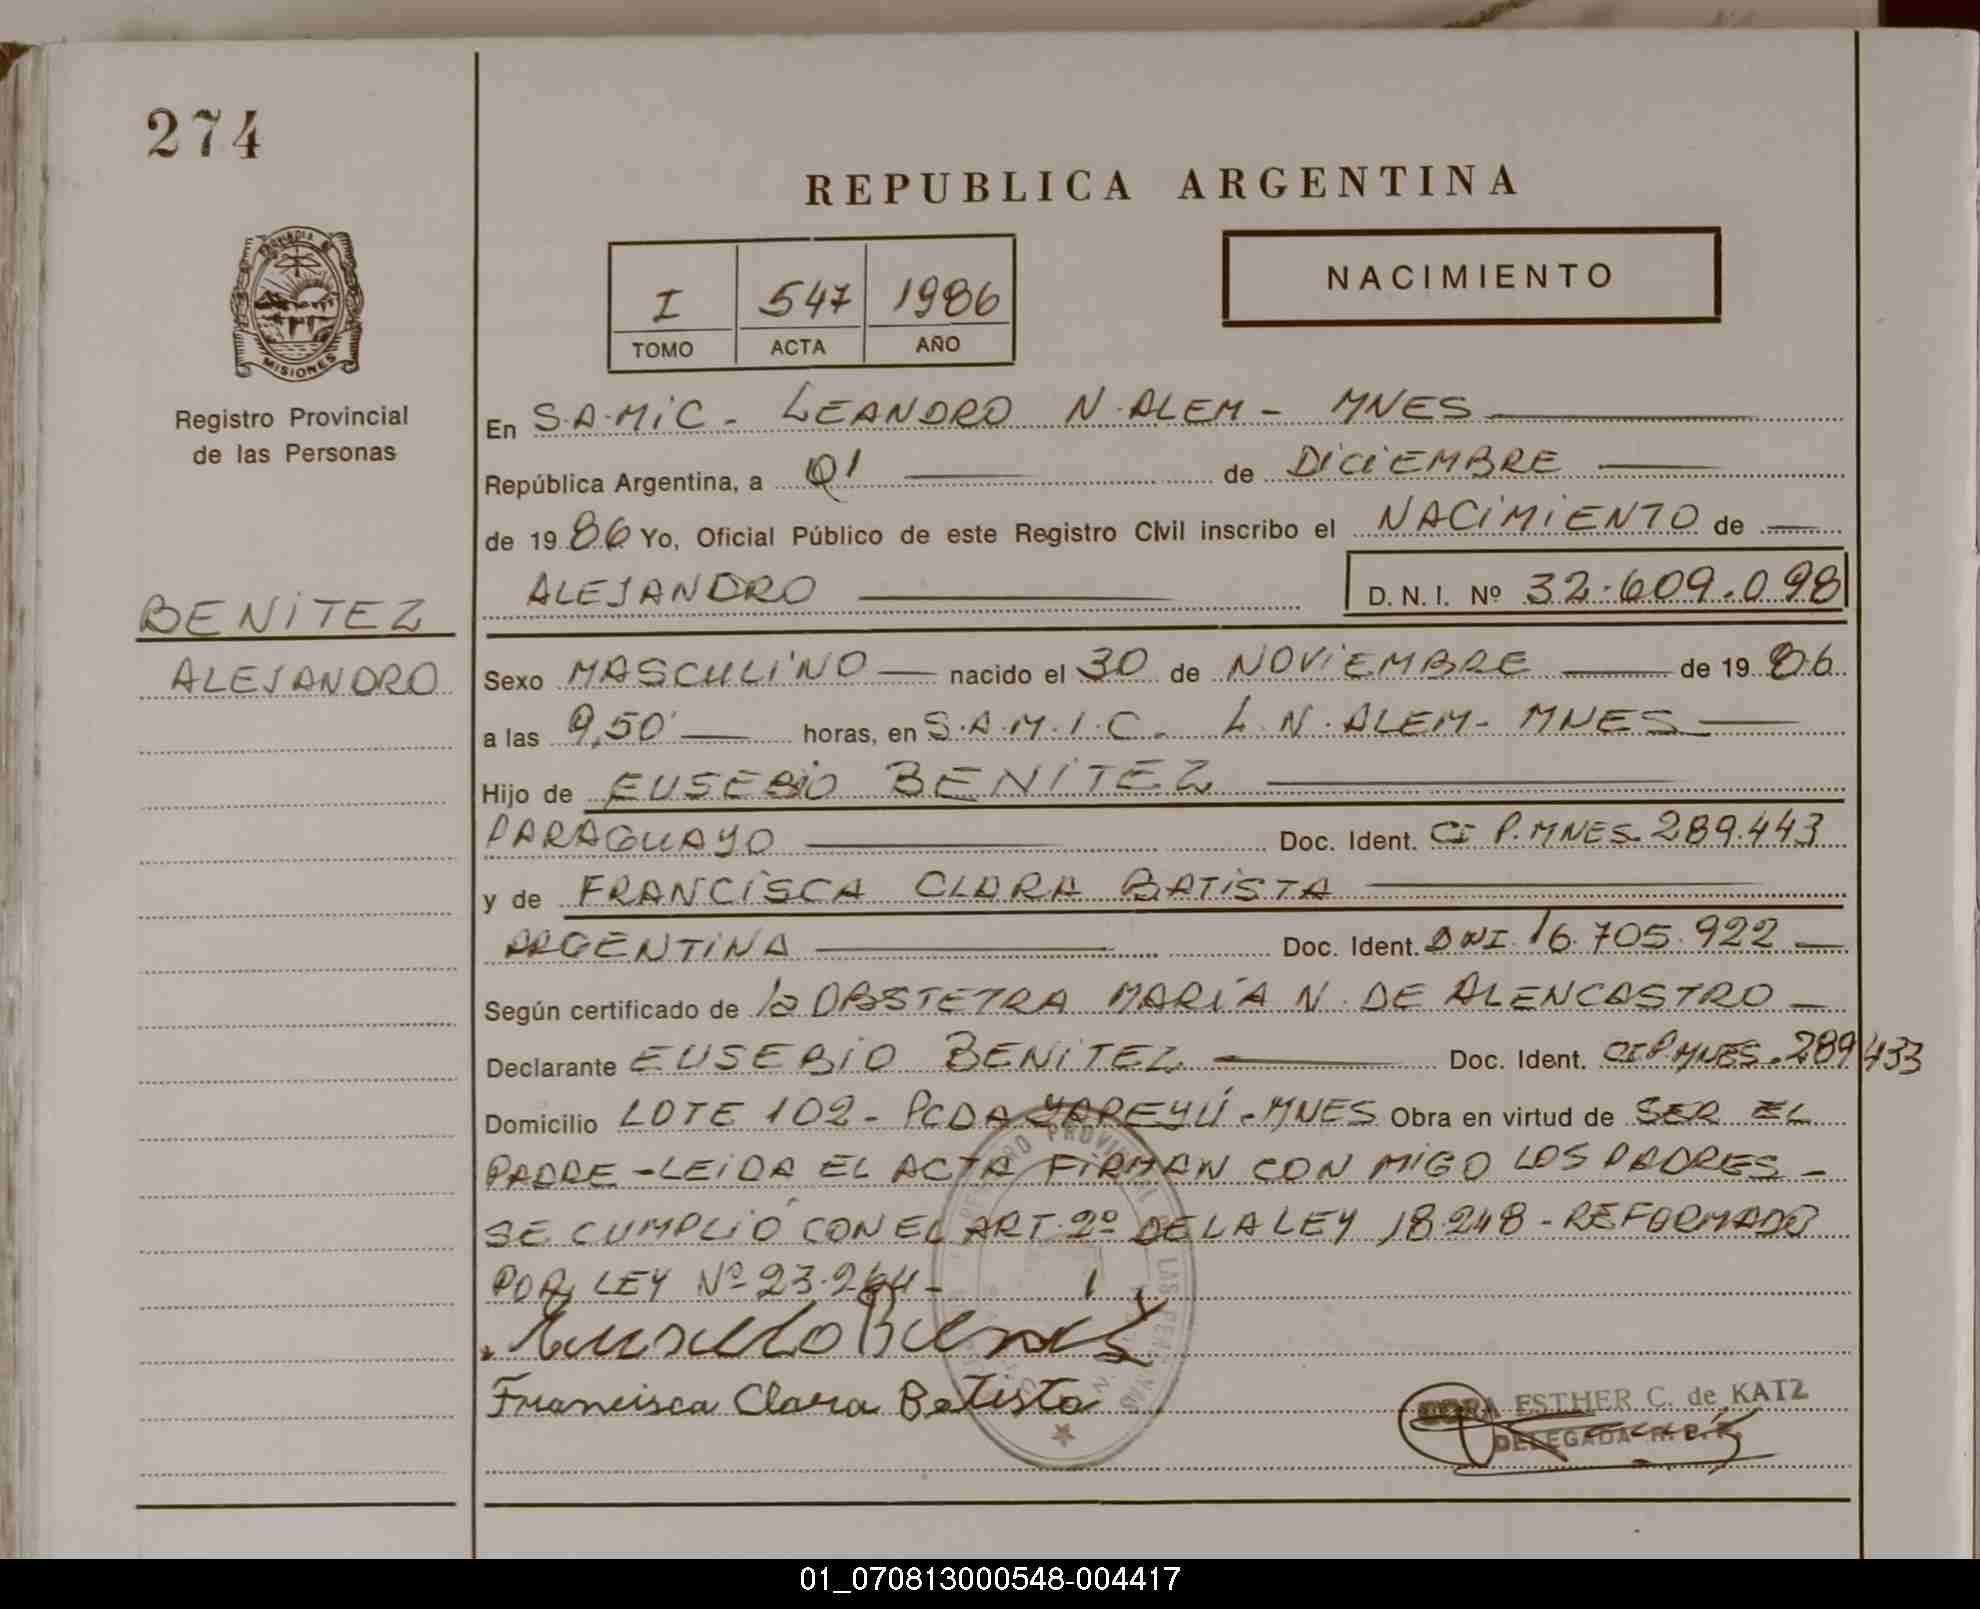 274
REPUBLICA ARGENTINA
NACIMIENTO
I 547 1986
TOMO ACTA AÑO
PROVINCIA DE
MISIONES
Registro Provincial
de las Personas
BENITEZ
ALEJANDRO
En S.A.MIC - LEANDRO N. ALEM - MNES
República Argentina, a 01 de DICIEMBRE
de 1986 Yo, Oficial Público de este Registro Civil inscribo el NACIMIENTO de
ALEJANDRO D.N.I. Nº 32.609.098
Sexo MASCULINO nacido el 30 de NOVIEMBRE de 1986
a las 9,50' horas, en S.A.M.I.C. L.N. ALEM - MNES
Hijo de EUSEBIO BENITEZ
PARAGUAYO Doc. Ident. CI P. MNES. 289.443
y de FRANCISCA CLARA BATISTA
ARGENTINA Doc. Ident. DNI. 16.705.922
Según certificado de la OBSTETRA MARÍA N. DE ALENCASTRO
Declarante EUSEBIO BENITEZ Doc. Ident. CI P. MNES. 289433
Domicilio LOTE 102 - PCDA YAPEYÚ - MNES Obra en virtud de SER EL
PADRE - LEIDA EL ACTA FIRMAN CON MIGO LOS PADRES -
SE CUMPLIÓ CON EL ART. 2º DE LA LEY 18.248 - REFORMADO
POR LEY Nº 23.264 -
Eusebio Benitez
Francisca Clara Batista
ESTHER C. de KATZ
DELEGADA
01_070813000548-004417